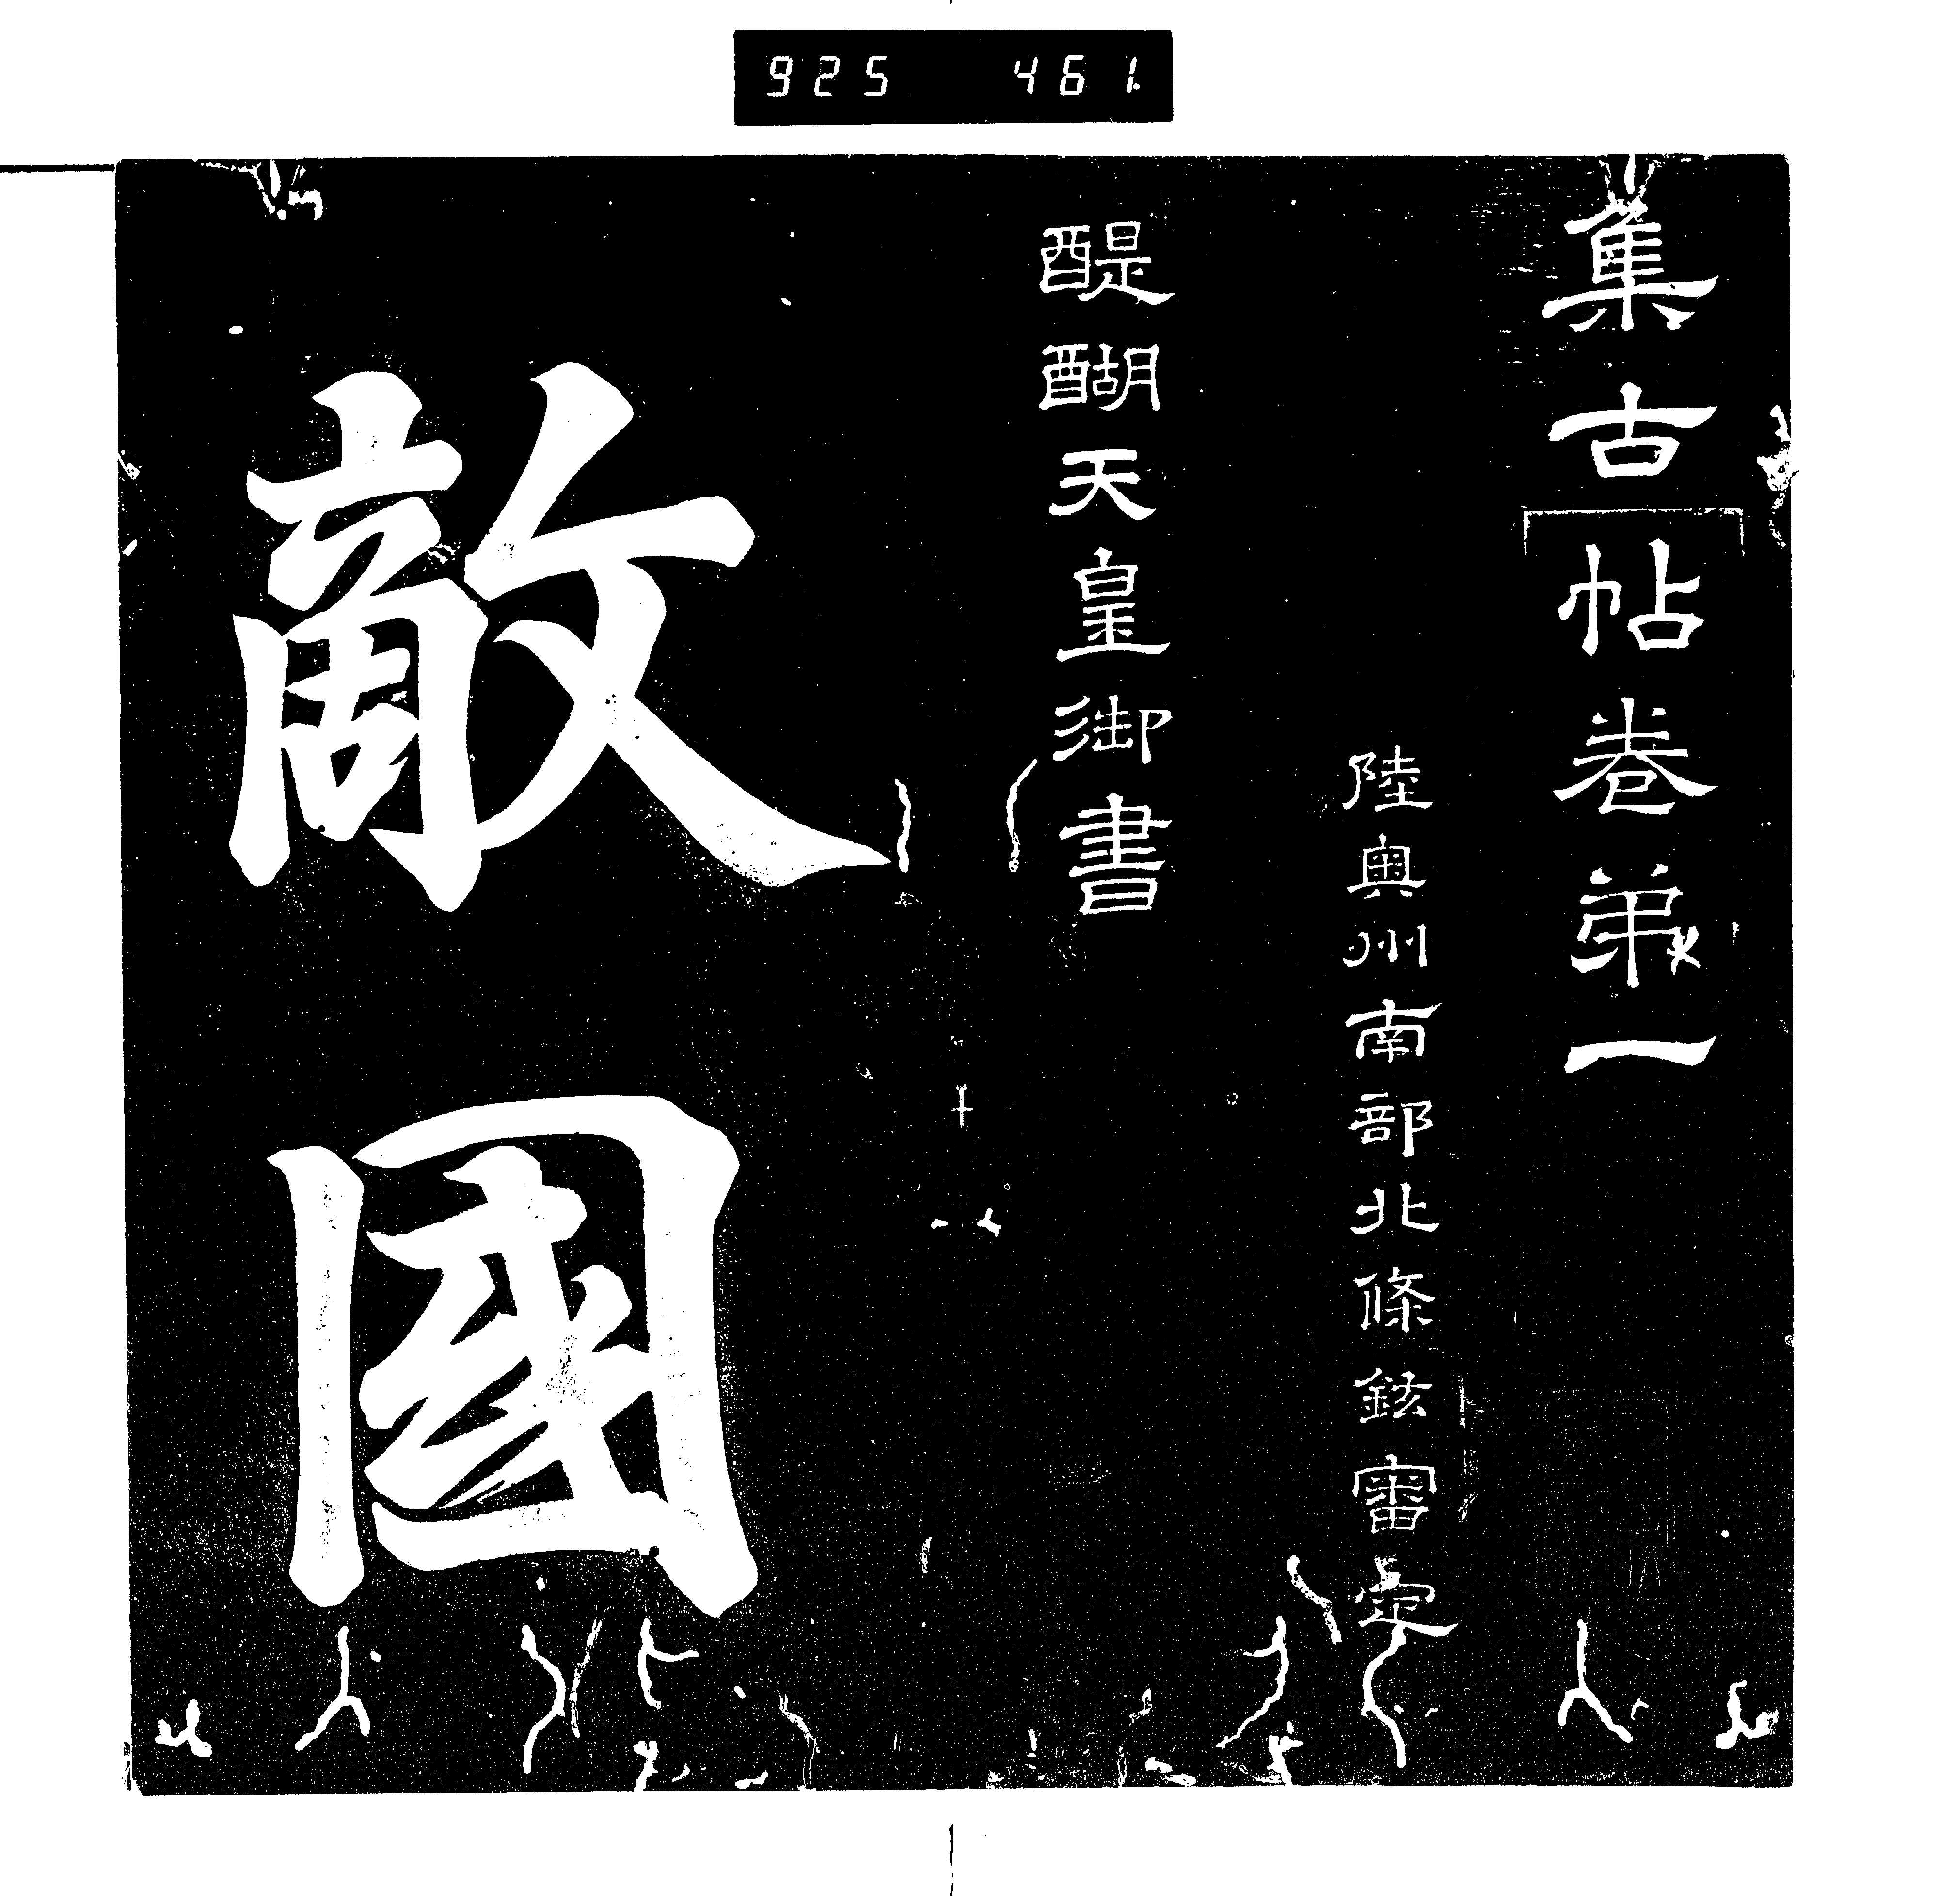 925 461.
集古帖卷弟一
陸奥州南部北條鉉審定
醍醐天皇御書
敵國